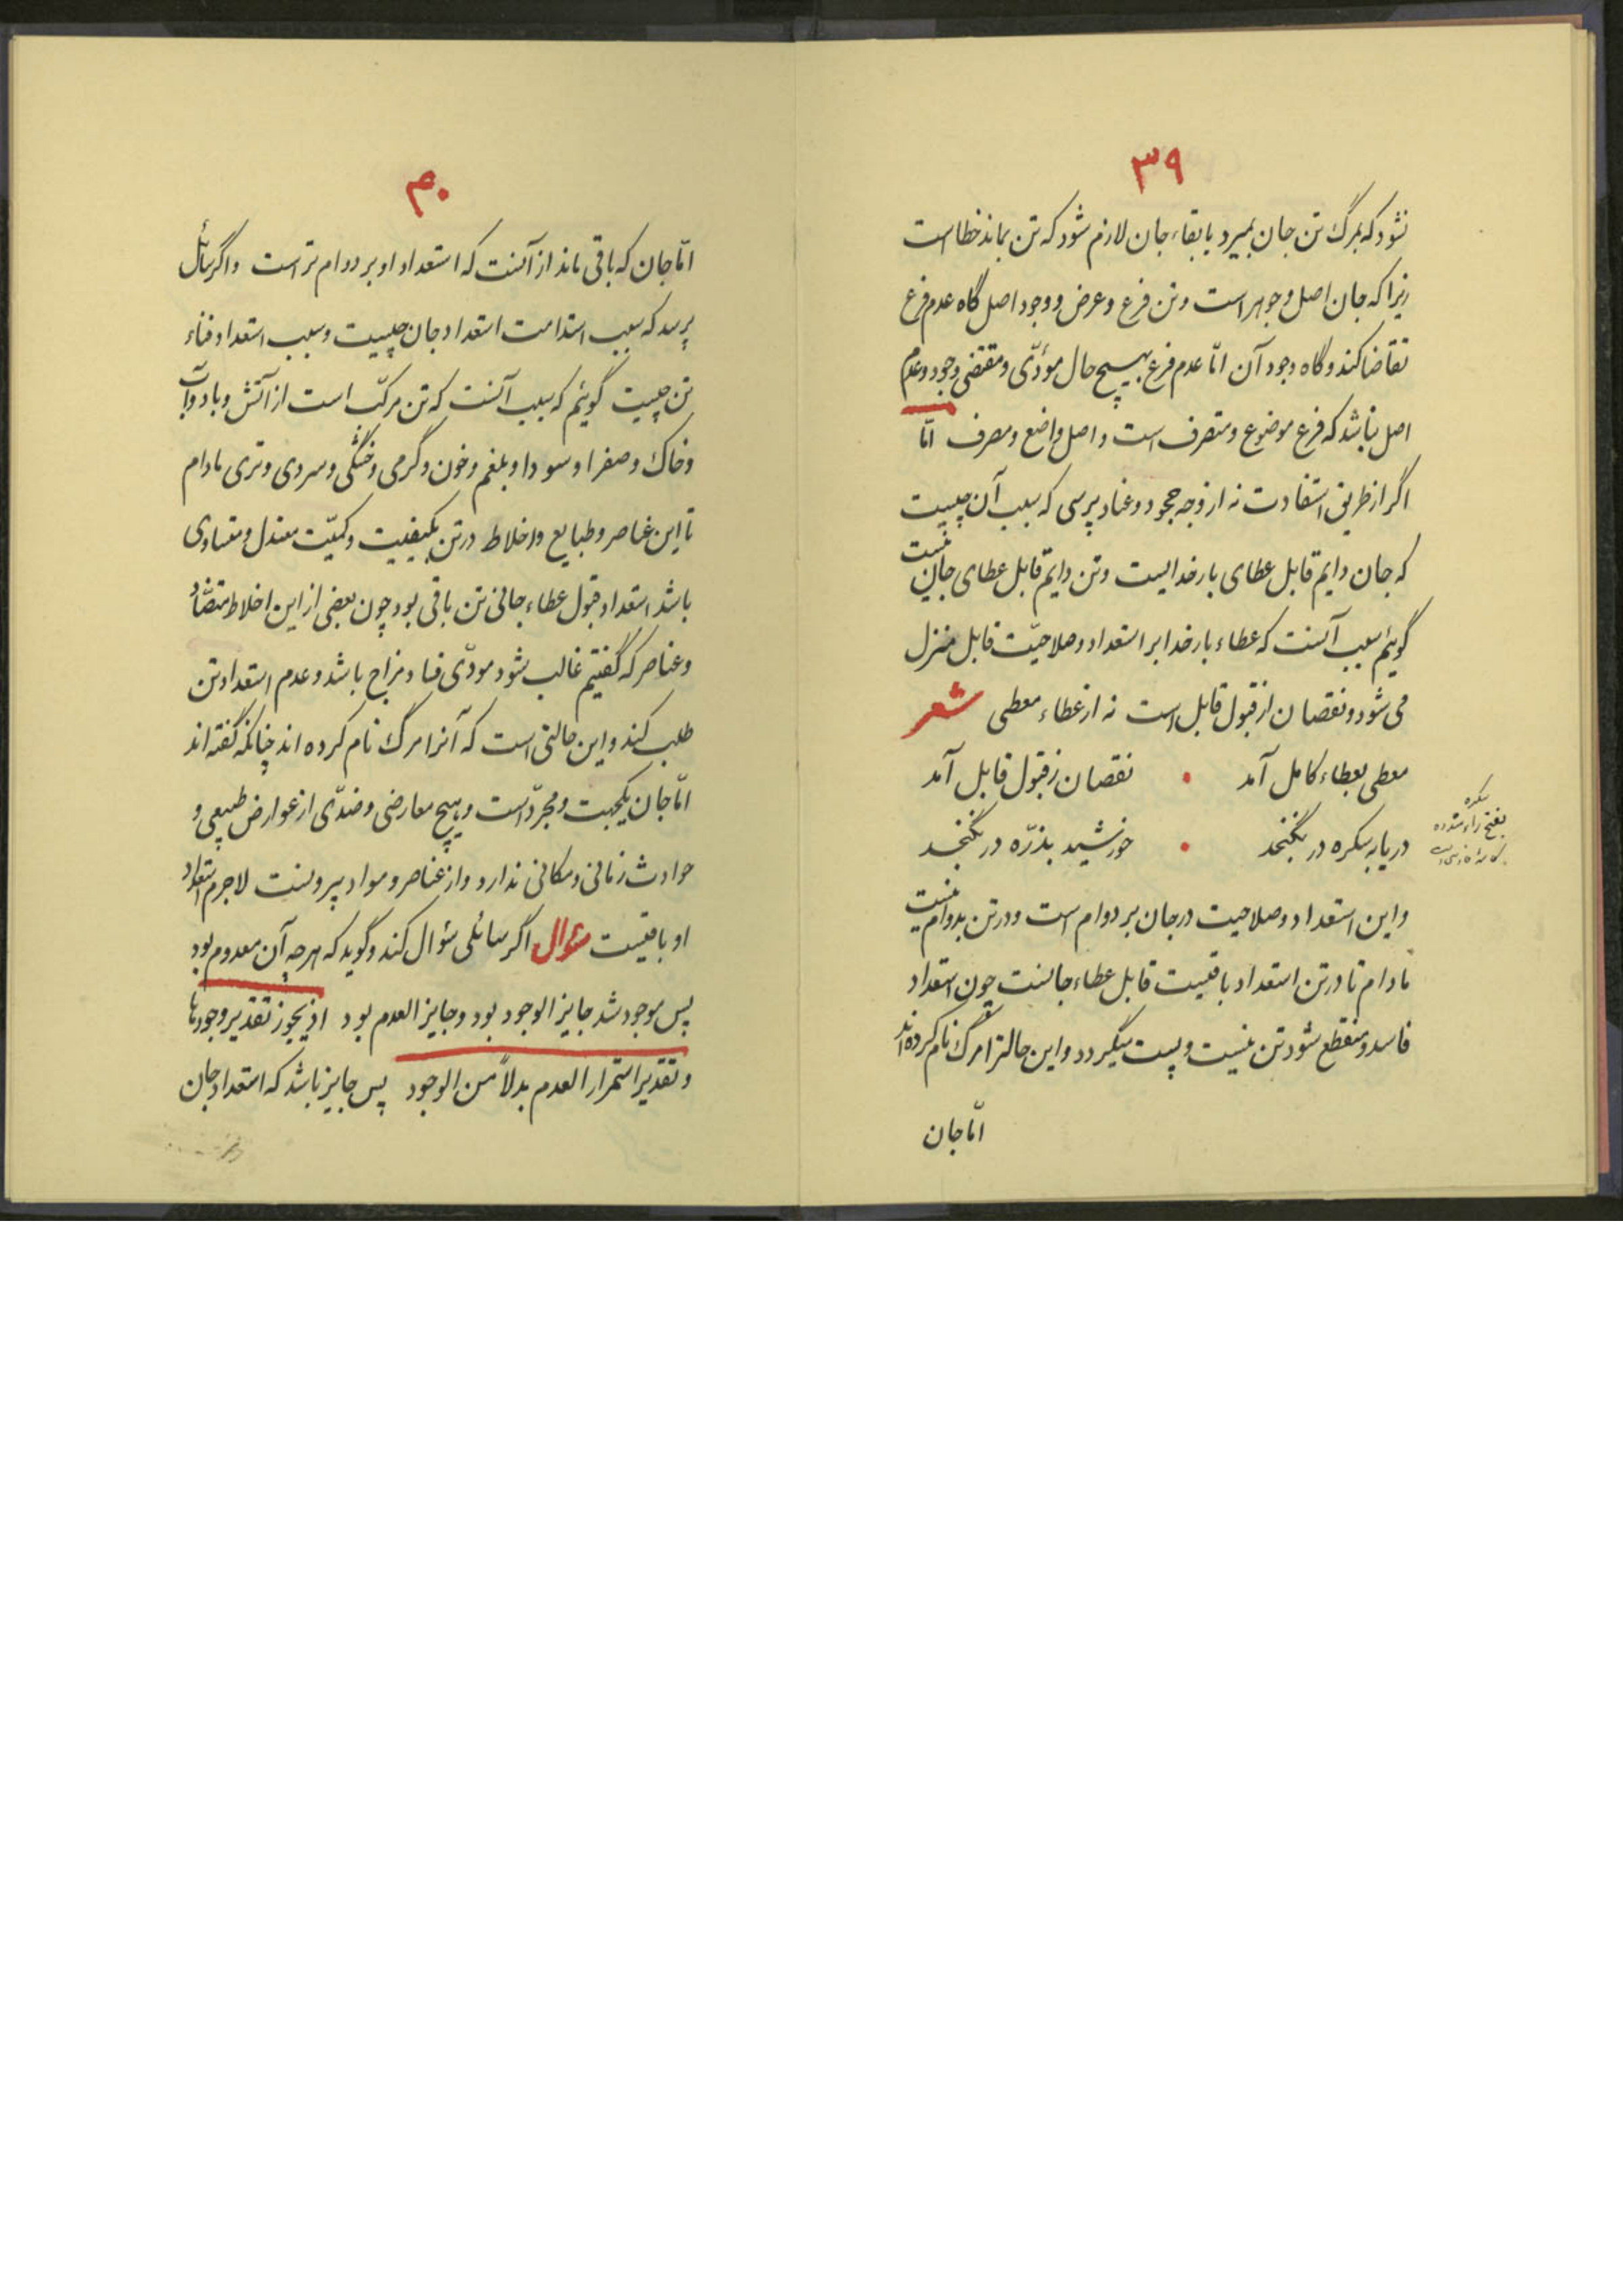 ۳۹
نشود که بمرگ تن جان بمیرد یا ببقاء جان لازم شود که تن بماند خطا است
زیرا که جان اصل و جوهر است و تن فرع و عرض و وجود اصل گاه عدم فرع
تقاضا کند و گاه وجود آن امّا عدم فرع بهیچ حال مؤدّی و مقتضی وجود و عدم
اصل نباشد که فرع موضوع و متصرف است و اصل واضع و مصرف امّا
اگر از طریق استفادت نه از وجه جحود و عناد پرسی که سبب آن چیست
که جان دایم قابل عطای بار خدایست و تن دایم قابل عطای جان نیست
گوئیم سبب آنست که عطاء بار خدا بر استعداد و صلاحیّت قابل منزل
می شود و نقصان از قبول قابل است نه از عطاء معطی شعر
معطی بعطاء کامل آمد • نقصان ز قبول قابل آمد
دریا به سکره در نگنجد • خورشید بذرّه در نگنجد
سکره
بفتح راء مشدده
و این استعداد و صلاحیت در جان بر دوام است و در تن بدوام نیست
مادام تا در تن استعداد باقیست قابل عطاء جانست چون استعداد
فاسد و منقطع شود تن نیست و پست میگردد و این حالترا مرگ نام کرده اند
امّا جان
۴۰
امّا جان که باقی ماند از آنست که استعداد او بر دوام تر است و اگر سائل
پرسد که سبب استدامت استعداد جان چیست و سبب استعداد فناء
تن چیست گوئیم که سبب آنست که تن مرکّب است از آتش و باد و آب
و خاک و صفرا و سودا و بلغم و خون و گرمی و خشگی و سردی و تری مادام
تا این عناصر و طبایع و اخلاط در تن بکیفیت و کمیّت معتدل و متساوی
باشد استعداد قبول عطاء جانی تن باقی بود چون بعضی از این اخلاط متضادّ
و عناصر که گفتیم غالب شود مودّی فساد مزاج باشد و عدم استعداد تن
طلب کند و این حالتی است که آنرا مرگ نام کرده اند چنانکه گفته اند
امّا جان یکجهت و مجردّ است و هیچ معارضی و ضدّی از عوارض طبیعی و
حوادث زمانی و مکانی ندارد و از عناصر و مواد بیرونست لاجرم استعداد
او باقیست سئوال اگر سائلی سئوال کند و گوید که هرچه آن معدوم بود
پس موجود شد جایز الوجود بود و جایز العدم بود اذ یجوز تقدیر وجودها
و تقدیر استمرار العدم بدلاً من الوجود پس جایز باشد که استعداد جان